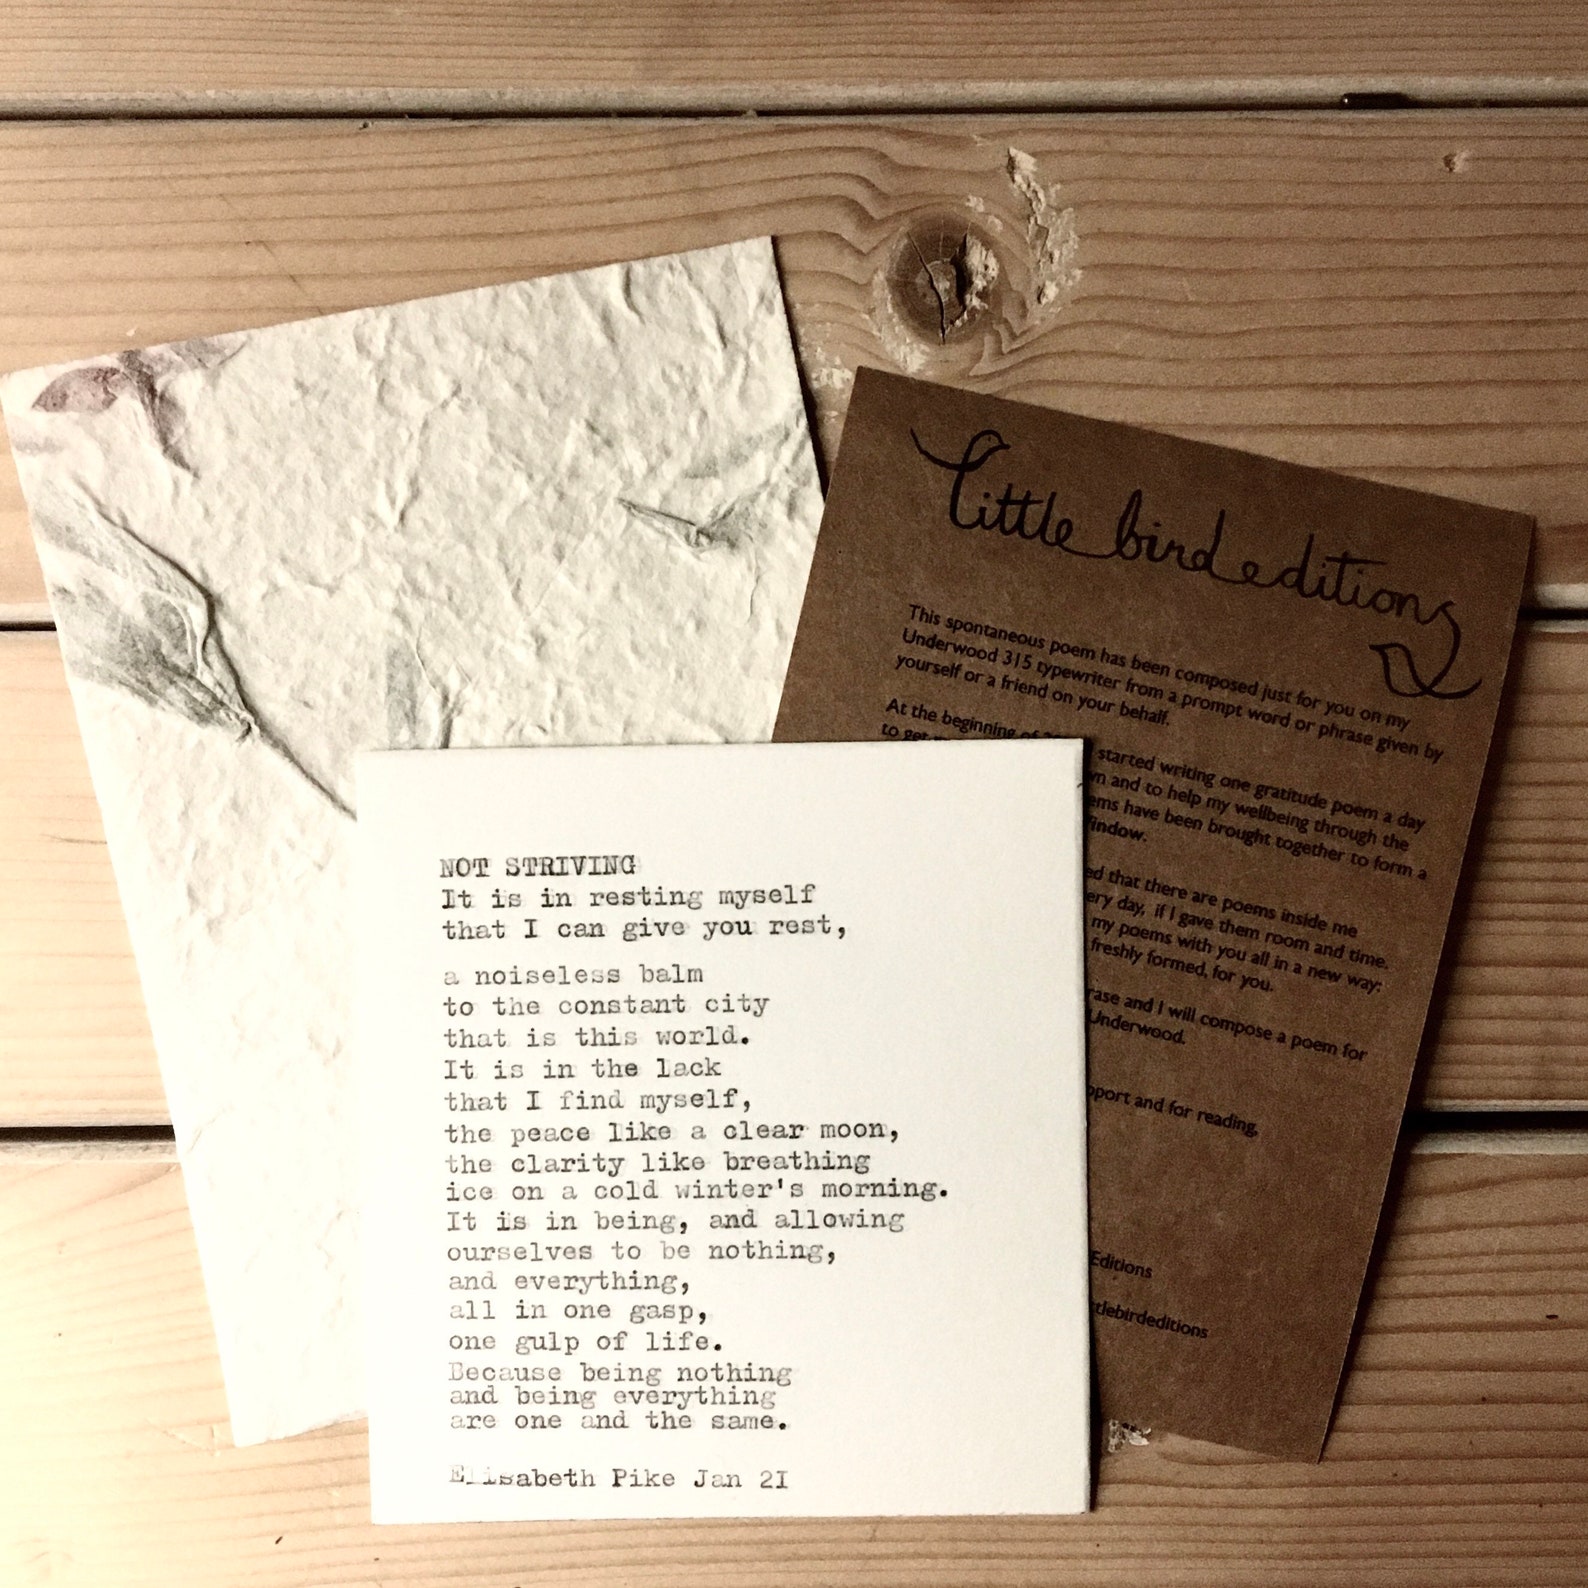 little bird editions
This spontaneous poem has been composed just for you on my
Underwood 315 typewriter from a prompt word or phrase given by
yourself or a friend on your behalf.
At the beginning of started writing one gratitude poem a day
to get and to help my wellbeing through the
have been brought together to form a
that there are poems inside me
day, if I gave them room and time.
my poems with you all in a new way:
freshly formed, for you.
and I will compose a poem for
Underwood.
and for reading,
Editions
NOT STRIVING
It is in resting myself
that I can give you rest,
a noiseless balm
to the constant city
that is this world.
It is in the lack
that I find myself,
the peace like a clear moon,
the clarity like breathing
ice on a cold winter's morning.
It is in being, and allowing
ourselves to be nothing,
and everything,
all in one gasp,
one gulp of life.
Because being nothing
and being everything
are one and the same.
Elisabeth Pike Jan 21